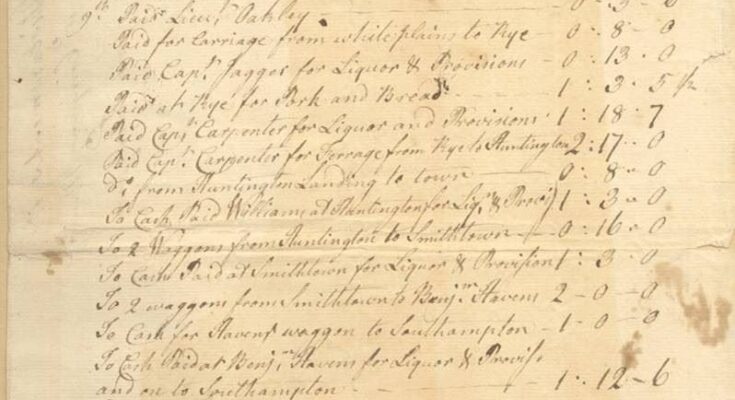 9th Paid Lieut Oakley — 0 : 3 - 0
Paid for Carriage from whiteplains to Rye — 0 : 8 - 0
Paid Capt Jagger for Liquor & Provisions — 0 : 13 - 0
Paid at Rye for Pork and Bread — 1 : 3 - 5 1/2
Paid Capt Carpenter for Liquor and Provisions 1 : 18 - 7
Paid Capt Carpenter for Ferrage from Rye to Huntington 2 : 17 - 0
Do from Huntington Landing to town — 0 : 8 - 0
To Cash Paid Williams at Huntington for Liqr & Provis 1 : 3 - 0
To 2 Waggons from Huntington to Smithtown — 0 - 16 - 0
To Cash Paid at Smithtown for Liquor & Provision 1 : 3 - 0
To 2 waggons from Smithtown to Benjmn Havens 2 - 0 - 0
To Cash for Havens waggon to Southampton — 1 - 0 - 0
To Cash Paid at Benjmn Havens for Liquor & Provisn
and on to Southampton — 1 : 12 - 6